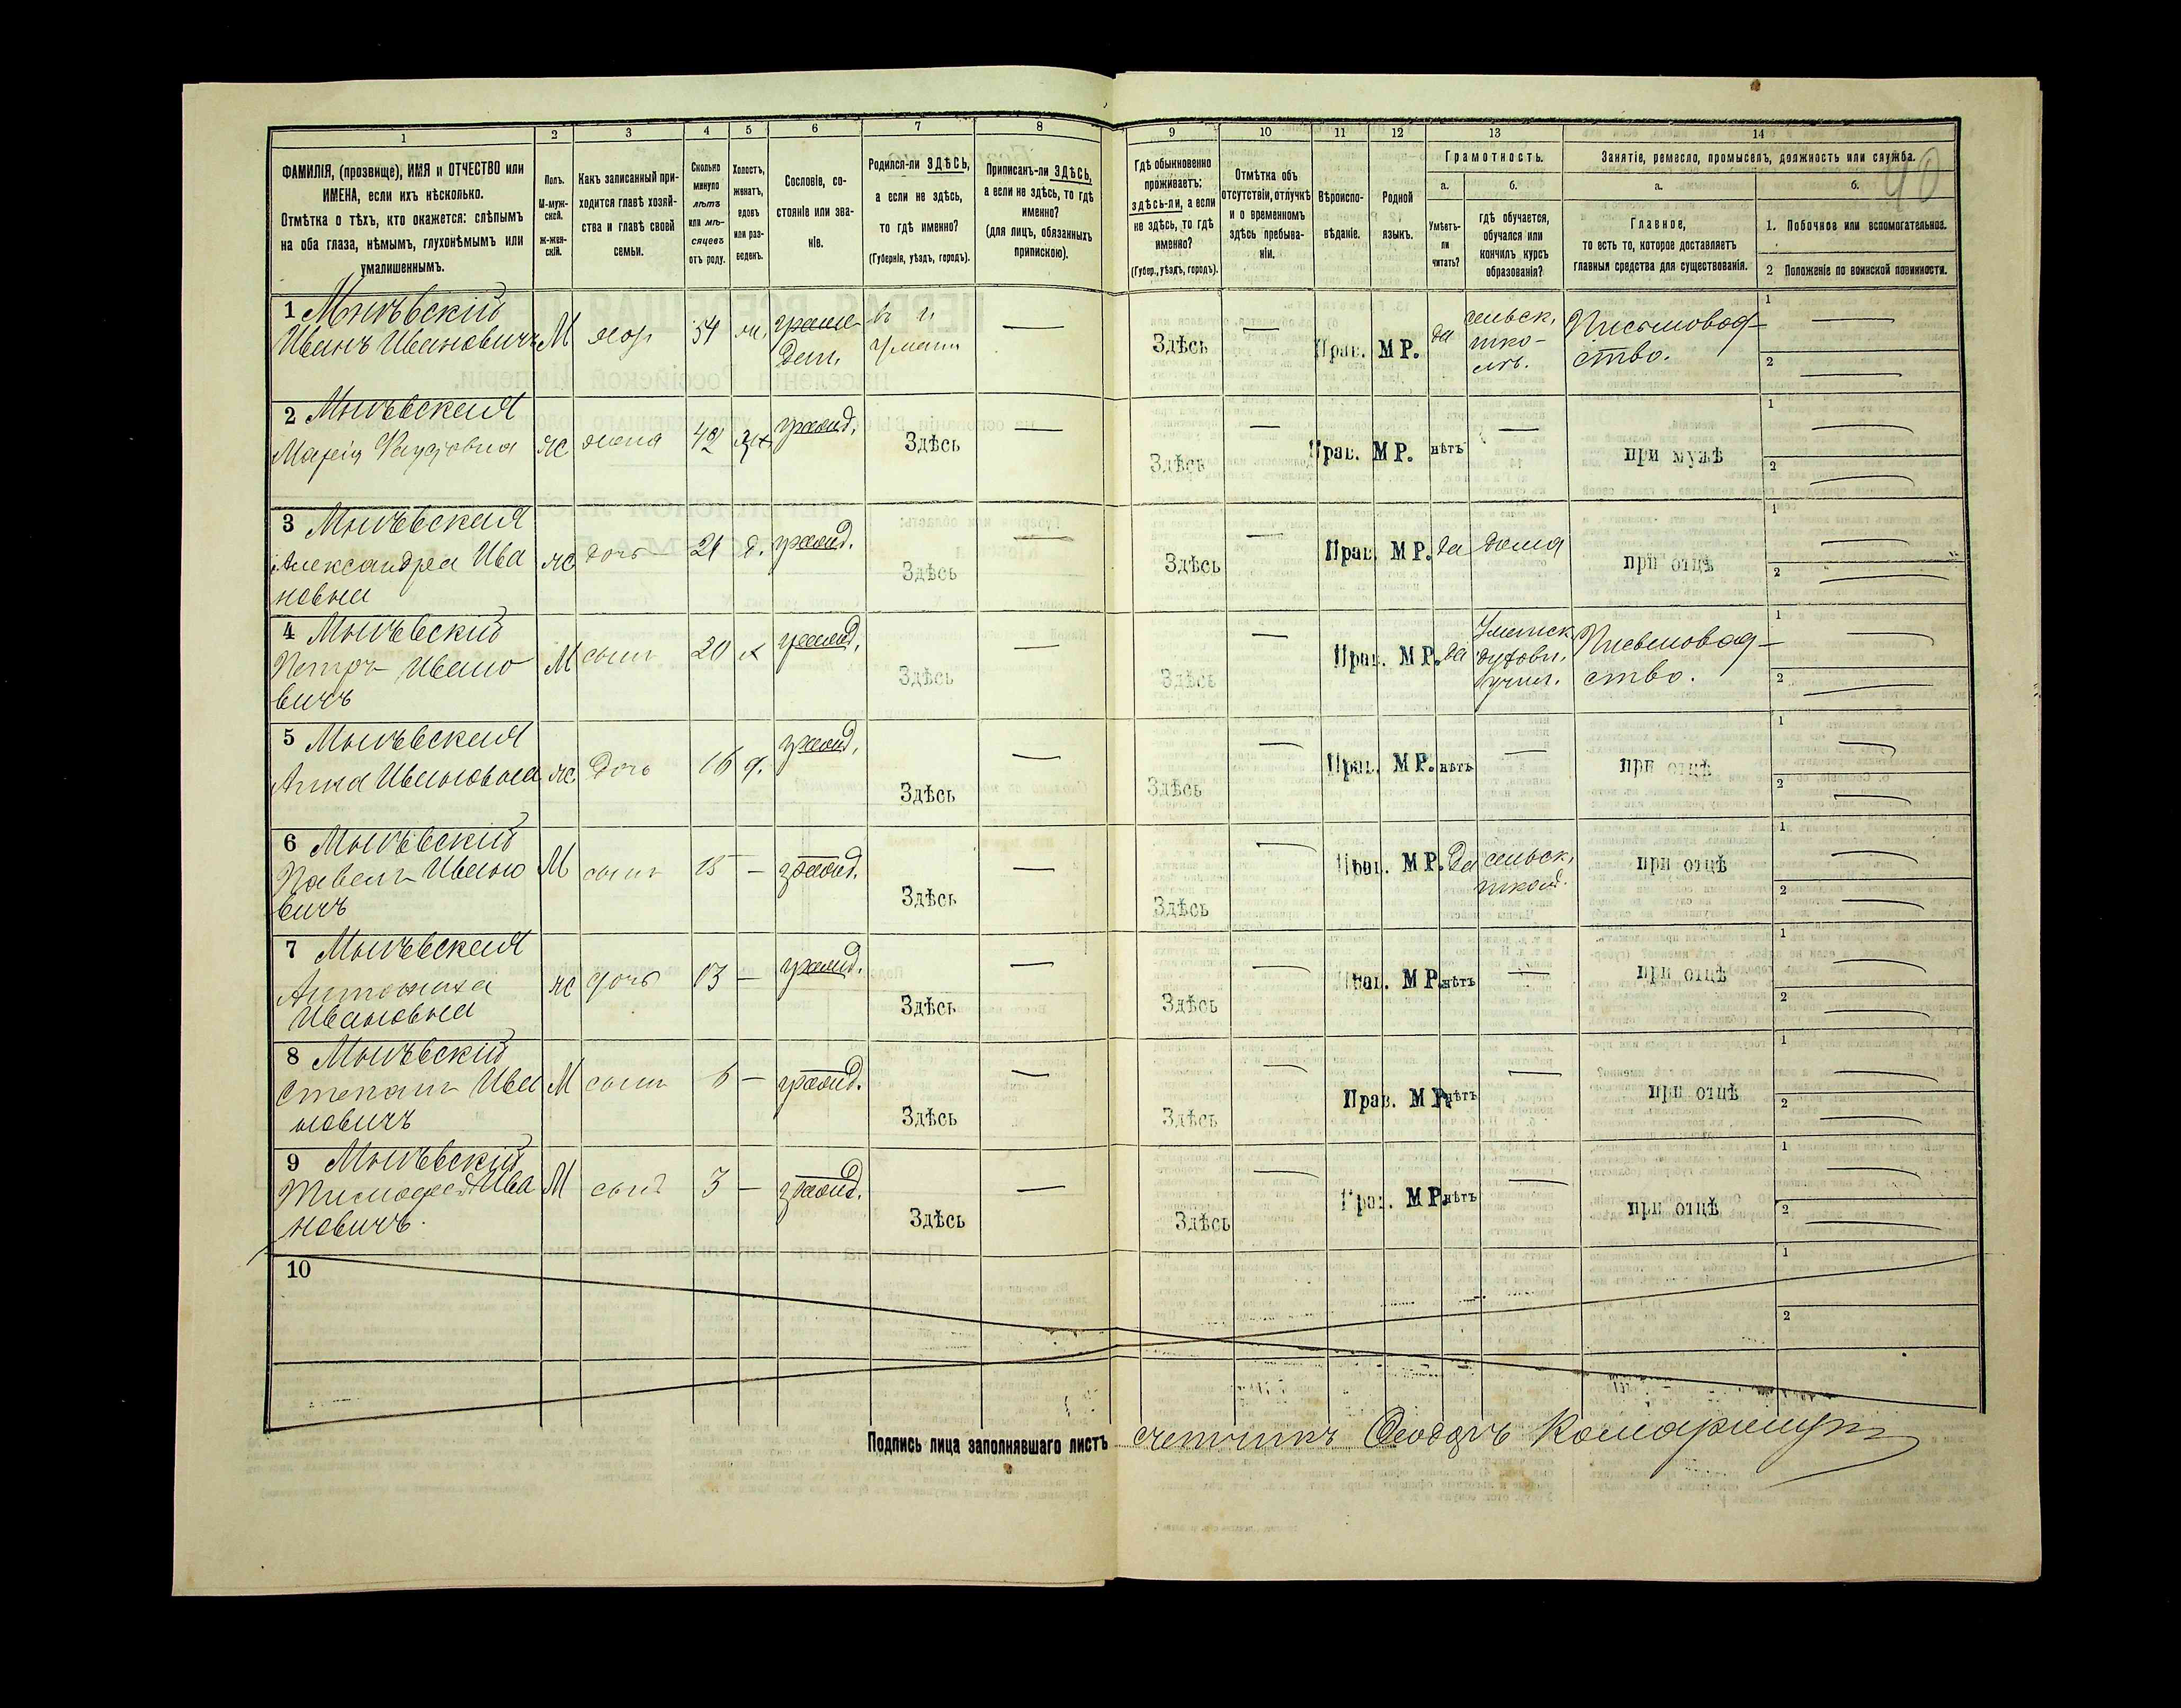 1
2
3
4
5
6
7
8
ФАМИЛІЯ, (прозвище), ИМЯ и ОТЧЕСТВО или
ИМЕНА, если ихъ нѣсколько.
Отмѣтка о тѣхъ, кто окажется: слѣпымъ
на оба глаза, нѣмымъ, глухонѣмымъ или
умалишеннымъ.
Полъ.
М-муж-
ской.
Ж-жен-
скій.
Какъ записанный при-
ходится главѣ хозяй-
ства и главѣ своей
семьи.
Сколько
минуло
лѣтъ
или мѣ-
сяцевъ
отъ роду.
Холостъ,
женатъ,
вдовъ
или раз-
веденъ.
Сословіе, со-
стояніе или зва-
ніе.
Родился-ли ЗДѢСЬ,
а если не здѣсь,
то гдѣ именно?
(Губернія, уѣздъ, городъ).
Приписанъ-ли ЗДѢСЬ,
а если не здѣсь, то гдѣ
именно?
(для лицъ, обязанныхъ
припискою).
9
10
11
12
13
14
Гдѣ обыкновенно
проживаетъ:
здѣсь-ли, а если
не здѣсь, то гдѣ
именно?
(Губер., уѣздъ, городъ).
Отмѣтка объ
отсутствіи, отлучкѣ
и о временномъ
здѣсь пребыва-
ніи.
Вѣроиспо-
вѣданіе.
Родной
языкъ.
Грамотность.
а.
Умѣетъ-
ли
читать?
б.
гдѣ обучается,
обучался или
кончилъ курсъ
образованія?
Занятіе, ремесло, промыселъ, должность или служба.
а.
Главное,
то есть то, которое доставляетъ
главныя средства для существованія.
б.
1. Побочное или вспомогательное.
2 Положеніе по воинской повинности.
40
1
Иванъ Ивановичъ М хоз 54 ж.
Здѣсь Прав. МР. да сельск. шко- Письмовод-
ство.
1
2
2
Марія жена 42 Здѣсь
Здѣсь Прав. МР. нѣтъ при мужѣ
1
2
3
Александра Ива
новна дочь 21 Здѣсь
Здѣсь Прав. МР. да дома при отцѣ
1
2
4
Петръ Ивано
вичъ М сынъ 20 х Здѣсь
Здѣсь Прав. МР. да Уманск. духовн. учил. Письмовод-
ство.
1
2
5
Анна Ивановна дочь 16 Здѣсь
Здѣсь Прав. МР. нѣтъ при отцѣ
1
2
6
Павелъ Ивано
вичъ М сынъ 15 — Здѣсь
Здѣсь Прав. МР. да сельск. школ. при отцѣ
1
2
7
Ивановна дочь 13 — Здѣсь
Здѣсь Прав. МР. нѣтъ при отцѣ
1
2
8
Степанъ Ива
новичъ М сынъ 6 — Здѣсь
Здѣсь Прав. МР. нѣтъ при отцѣ
1
2
9
Тимофей Ива
новичъ. М сынъ 3 — Здѣсь
Здѣсь Прав. МР. нѣтъ при отцѣ
1
2
10
1
2
Подпись лица заполнявшаго листъ счетчикъ Ѳеодоръ